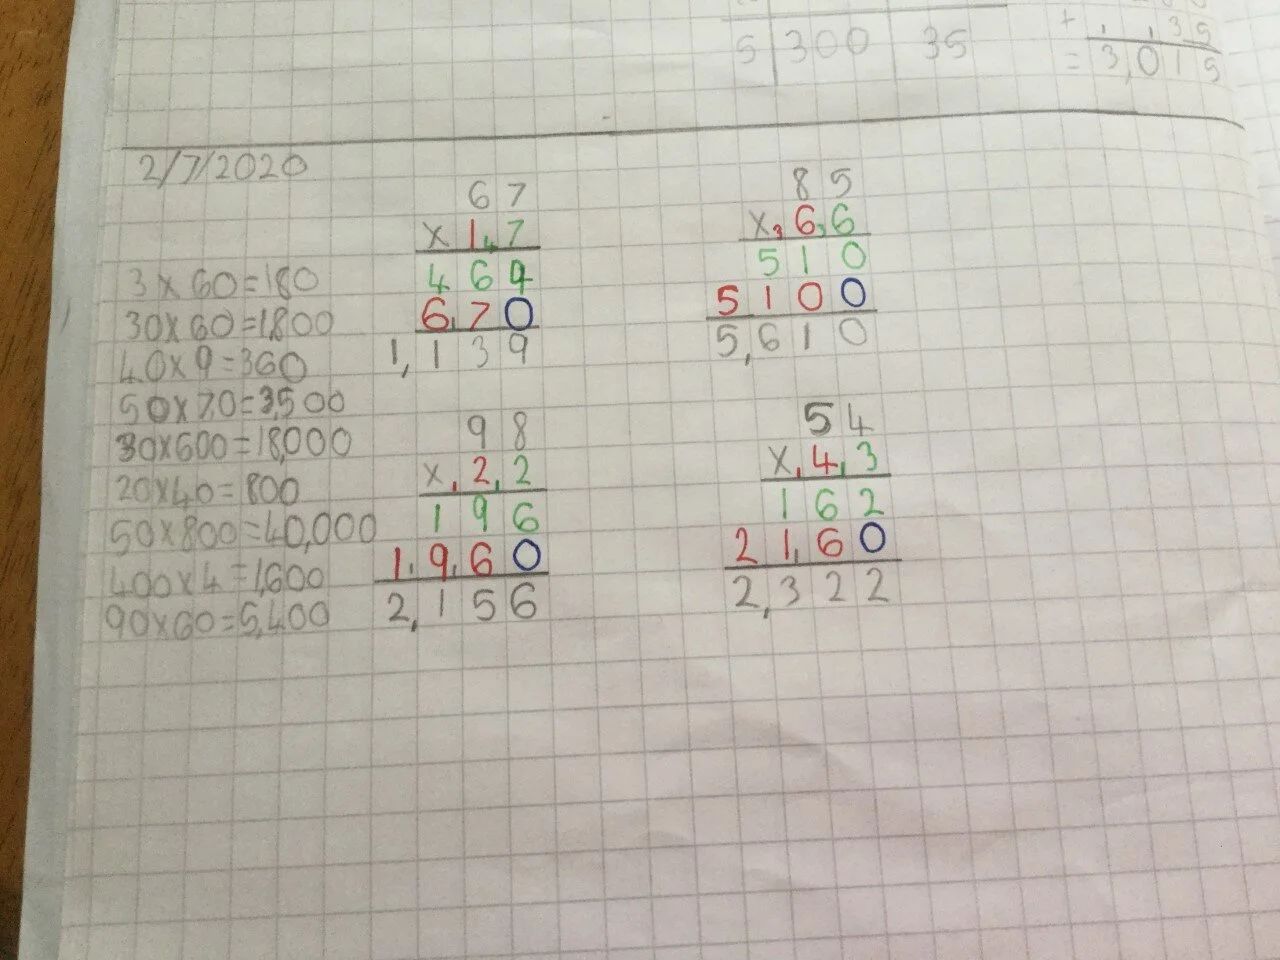 5 300 35
+ 35
= 3,015
2/7/2020
3 x 60 = 180
30 x 60 = 1,800
40 x 9 = 360
50 x 70 = 3,500
30 x 600 = 18,000
20 x 40 = 800
50 x 800 = 40,000
400 x 4 = 1,600
90 x 60 = 5,400
67
x 1 4 7
469
670
1,139
85
x 3 6 3 6
510
5100
5,610
98
x 2 2
196
1960
2,156
54
x 4 3
162
2160
2,322